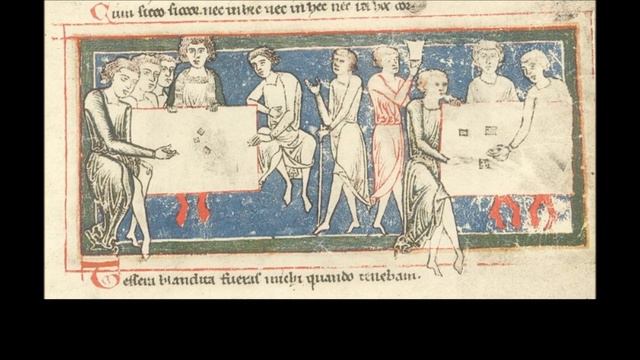 Cum sicco siccor nec in hic nec in hec nec in hoc cor
Tessera blandita fueras michi quando tenebam.